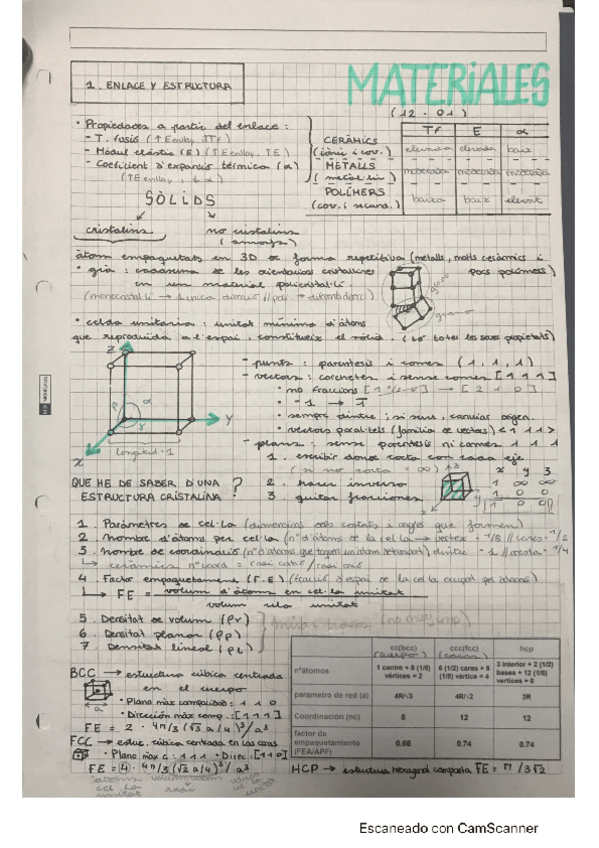 1. ENLACE Y ESTRUCTURA
MATERIALES
(12-01)
• Propiedades a partir del enlace:
- T. fusió (↑Eenllaç ↑Tf)
- Mòdul elàstic (E) (↑Eenllaç ↑E)
- Coeficient d'expansió tèrmica (α)
(↑Eenllaç ↓α)
CERÀMICS
(iònic i cov.)
METALLS
(metàl·lic)
POLÍMERS
(cov. i secund.)
Tf E α
elevada elevada baix
moderada moderada moderada
baixa baix elevat
SÒLIDS
cristalins no cristalins
(amorfs)
àtom empaquetats en 3D de forma repetitiva (metalls, molts ceràmics i
pocs polímers)
• grà: cadascuna de les orientacions cristallines
en un material policristal·lí.
grano
grano
• celda unitaria: unitat mínima d'àtoms
que reproduïda a l'espai, constitueix el sòlid. (té totes les seves propietats)
z
y
x
α
β
γ
longitud = 1
- punts: parentesis i comes (1,1,1)
- vectors: corchetes i sense comes [1 1 1]
• no fraccions [1 1/2 0] → [2 1 0]
• -1 → 1̅
• sempre dintre; si surt, canviar origen.
• vectors paral·lels (família de vectors) <111>
- plans: sense parentesis ni comes 1 1 1
1. escribir donde corta con cada eje
(si no corta = ∞)
2. hacer inverso
3. quitar fracciones
x y z
1 ∞ ∞
1 0 0
1 0 0
QUE HE DE SABER D'UNA
ESTRUCTURA CRISTALINA ?
1. Paràmetres de cel·la (dimensions dels costats i angles que formen)
2. Nombre d'àtoms per cel·la (nº d'àtoms de la cel·la → vèrtex = 1/8 // cares = 1/2
3. Nombre de coordinació (nº d'àtoms que toquen un àtom determinat) dintre = 1 // aresta = 1/4
↳ ceràmics nº coord = radi catió / radi anió
4. Factor empaquetament (F.E) (fracció d'espai de la cel·la ocupat per àtoms)
↳ FE = volum d'àtoms en cel·la unitat
volum cel·la unitat
5. Densitat de volum (ρv)
6. Densitat planar (ρp)
7. Densitat lineal (ρL)
BCC → estructura cúbica centrada
en el cuerpo
• Plano màx compacidad: 1 1 0
• Dirección màx comp.: [1 1 1]
FE = 2 · 4π/3 (√3 a/4)³/a³
FCC → estruc. cúbica centada en las caras
• Plano màx c: 1 1 1 • Direc: [1 1 0]
FE = 4 · 4π/3 (√2 a/4)³/a³
àtoms
cel·la
unitat
radi
cc(bcc) ccc(fcc) hcp
(cuerpo) (caras)
nºátomos
1 centro + 8 (1/8) vértices = 2
6 (1/2) caras + 8 (1/8) vértice = 4
3 interior + 2 (1/2) bases + 12 (1/6) vertices = 6
parametro de red (a) 4R/√3 4R/√2 2R
Coordinación (nc) 8 12 12
factor de empaquetamiento (FEA/APF) 0.68 0.74 0.74
HCP → estructura hexagonal compacta FE = π/3√2
Escaneado con CamScanner